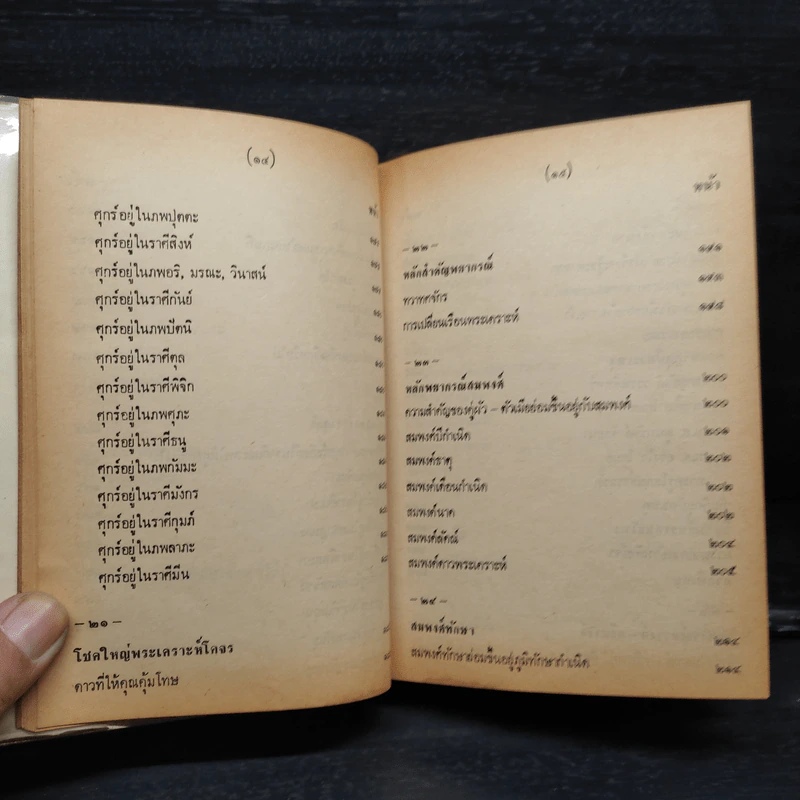 (๑๔)
ศุกร์อยู่ในภพปุตตะ
ศุกร์อยู่ในราศีสิงห์
ศุกร์อยู่ในภพอริ, มรณะ, วินาสน์
ศุกร์อยู่ในราศีกันย์
ศุกร์อยู่ในภพปัตนิ
ศุกร์อยู่ในราศีตุล
ศุกร์อยู่ในราศีพิจิก
ศุกร์อยู่ในภพศุภะ
ศุกร์อยู่ในราศีธนู
ศุกร์อยู่ในภพกัมมะ
ศุกร์อยู่ในราศีมังกร
ศุกร์อยู่ในราศีกุมภ์
ศุกร์อยู่ในภพลาภะ
ศุกร์อยู่ในราศีมีน
– ๒๑ –
โชคใหญ่พระเคราะห์โคจร
ดาวที่ให้คุณคุ้มโทษ
(๑๕)
หน้า
– ๒๒ –
หลักสำคัญพยากรณ์ ๑๙๑
ทวาทศจักร ๑๙๓
การเปลี่ยนเรือนพระเคราะห์ ๑๙๘
– ๒๓ –
หลักพยากรณ์สมพงศ์ ๒๐๐
ความสำคัญของคู่ผัว – ตัวเมียย่อมขึ้นอยู่กับสมพงศ์ ๒๐๐
สมพงศ์ปีกำเนิด ๒๐๑
สมพงศ์ธาตุ ๒๐๒
สมพงศ์เดือนกำเนิด ๒๐๒
สมพงศ์นาค ๒๐๒
สมพงศ์ลัคณ์ ๒๐๔
สมพงศ์ดาวพระเคราะห์ ๒๐๕
– ๒๔ –
สมพงศ์ทักษา ๒๑๔
สมพงศ์ทักษาย่อมขึ้นอยู่ภูมิทักษากำเนิด ๒๑๔